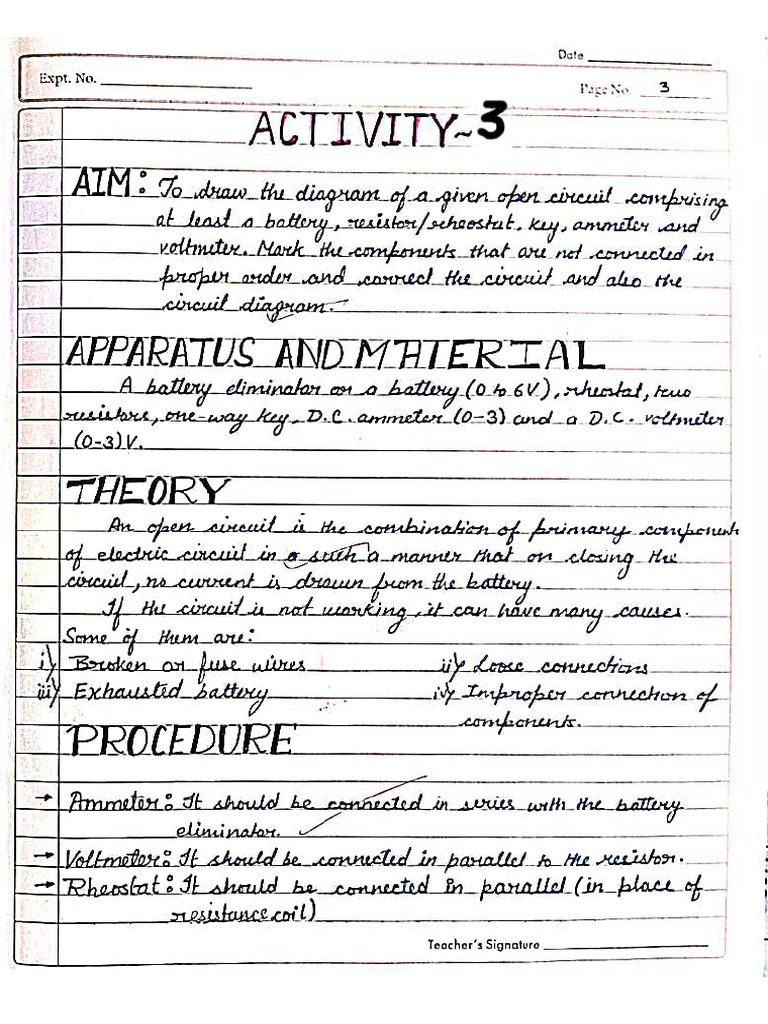 Date
Expt. No.
Page No. 3
ACTIVITY~3
AIM: To draw the diagram of a given open circuit comprising
at least a battery, resistor/rheostat, key, ammeter and
voltmeter. Mark the components that are not connected in
proper order and correct the circuit and also the
circuit diagram.
APPARATUS AND MATERIAL
A battery eliminator or a battery (0 to 6V), rheostat, two
resistors, one-way key, D.C. ammeter (0-3) and a D.C. voltmeter
(0-3)V.
THEORY
An open circuit is the combination of primary component
of electric circuit in a such a manner that on closing the
circuit, no current is drawn from the battery.
If the circuit is not working, it can have many causes.
Some of them are:
i) Broken or fuse wires ii) Loose connections
iii) Exhausted battery iv) Improper connection of
components.
PROCEDURE
→ Ammeter: It should be connected in series with the battery
eliminator.
→ Voltmeter: It should be connected in parallel to the resistor.
→ Rheostat: It should be connected in parallel (in place of
resistance coil)
Teacher's Signature